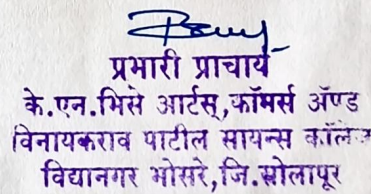 प्रभारी प्राचार्य
के.एन.भिसे आर्टस्,कॉमर्स अ‍ॅण्ड
विनायकराव पाटील सायन्स कॉलेज
विद्यानगर भोसरे,जि.सोलापूर